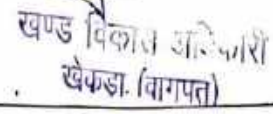 खण्ड विकास अधिकारी
खेकडा (वागपत)